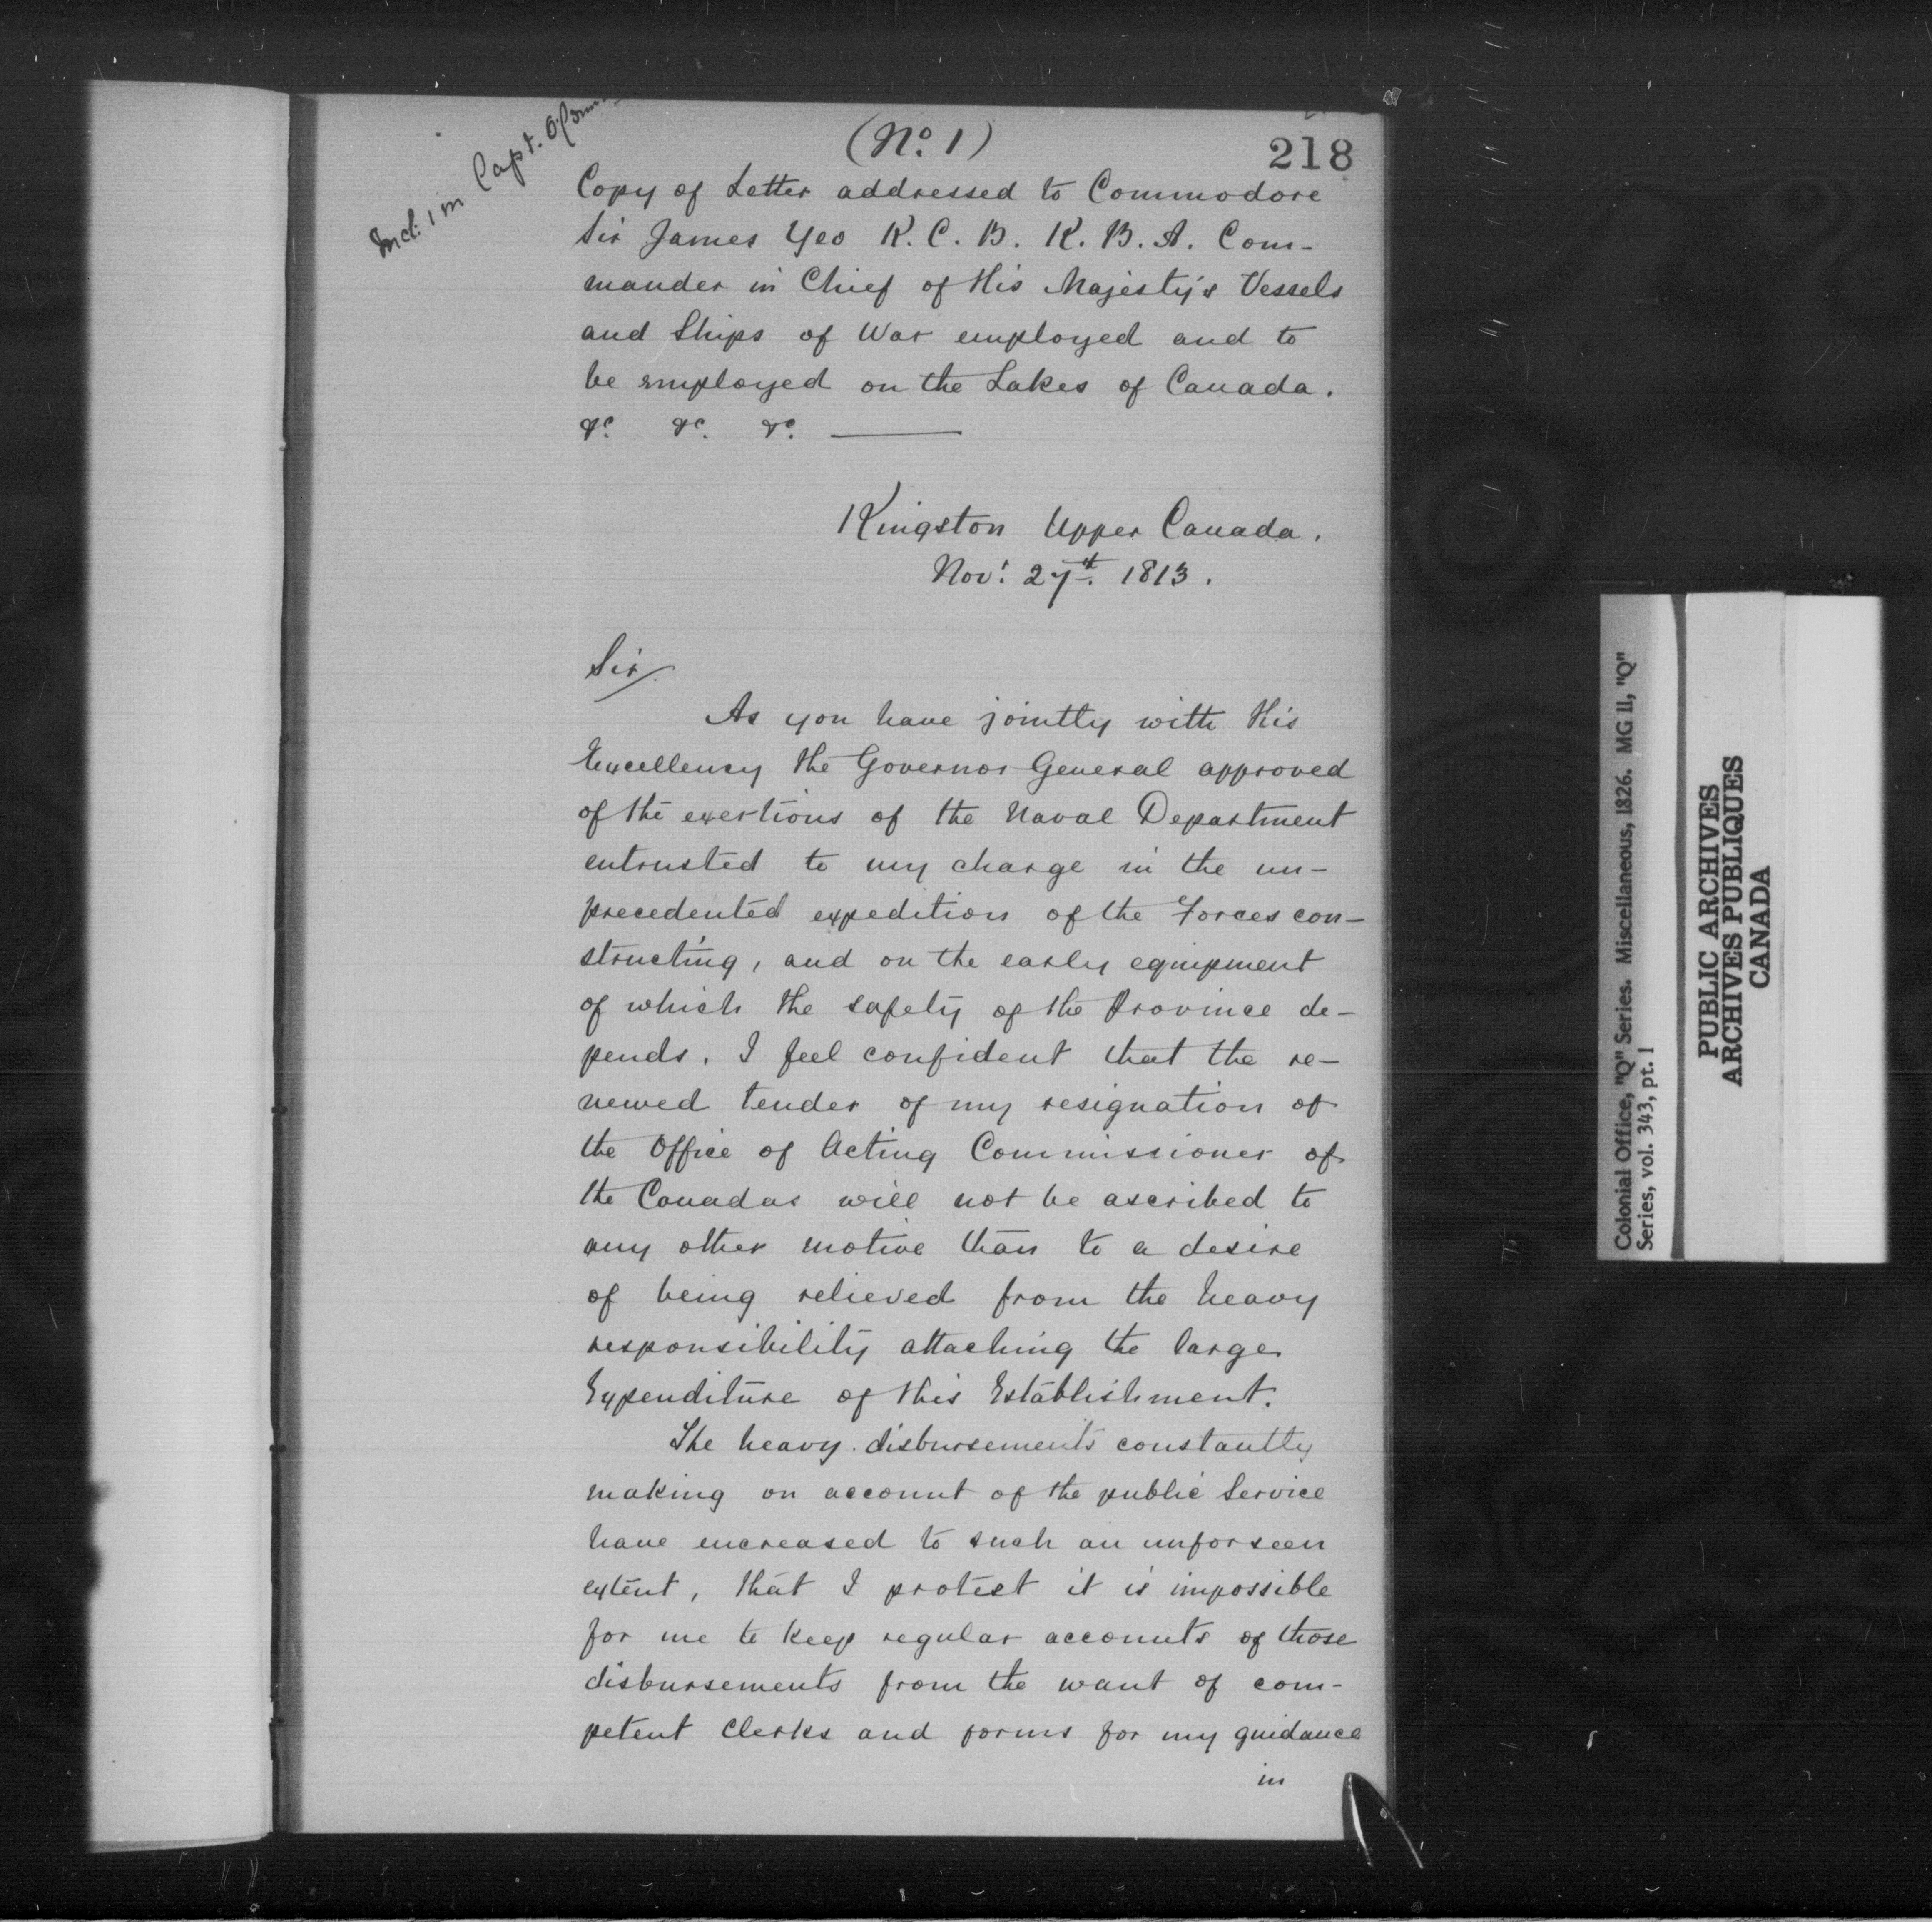 (No. 1)
218
Incl: 1 in Capt.
Copy of Letter addressed to Commodore
Sir James Yeo K. C. B. K. B. A. Com-
mander in Chief of His Majesty's Vessels
and Ships of War employed and to
be employed on the Lakes of Canada.
&c. &c. &c.
Kingston Upper Canada.
Novr. 27th. 1813.
Sir,
As you have jointly with His
Excellency the Governor General approved
of the exertions of the Naval Department
entrusted to my charge in the un-
precedented expedition of the Forces con-
structing, and on the early equipment
of which the safety of the Province de-
pends. I feel confident that the re-
newed tender of my resignation of
the Office of Acting Commissioner of
the Canadas will not be ascribed to
any other motive than to a desire
of being relieved from the heavy
responsibility attaching the large
Expenditure of this Establishment.
The heavy disbursements constantly
making on account of the public Service
have encreased to such an unforseen
extent, that I protest it is impossible
for me to keep regular accounts of those
disbursements from the want of com-
petent Clerks and forms for my guidance
in
Colonial Office, "Q" Series. Miscellaneous, 1826. MG 11, "Q"
Series, vol. 343, pt. 1
PUBLIC ARCHIVES
ARCHIVES PUBLIQUES
CANADA